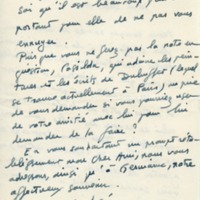 soi qu'il est beaucoup plus im-
portant pour elle de ne pas vous
ennuyer.
Puis que vous ne ferez pas la note en
question, qui admire les pein-
tures et les écrits de Dubuffet (lequel
se trouve actuellement à Paris), me prie
de vous demander si vous pourriez user
de votre amitié avec lui pour lui
demander de la faire ?
En vous souhaitant un prompt réta-
blissement mon cher Ami, nous vous
adressons, ainsi qu'à Germaine, notre
affectueux souvenir.